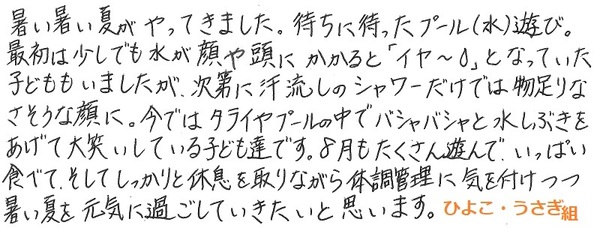 暑い暑い夏がやってきました。待ちに待ったプール(水)遊び。
最初は少しでも水が顔や頭にかかると「イヤ〜」となっていた
子どももいましたが、次第に汗流しのシャワーだけでは物足りな
さそうな顔に。今ではタライやプールの中でバシャバシャと水しぶきを
あげて大笑いしている子ども達です。8月もたくさん遊んで、いっぱい
食べて、そしてしっかりと休息を取りながら体調管理に気を付けつつ
暑い夏を元気に過ごしていきたいと思います。ひよこ・うさぎ組